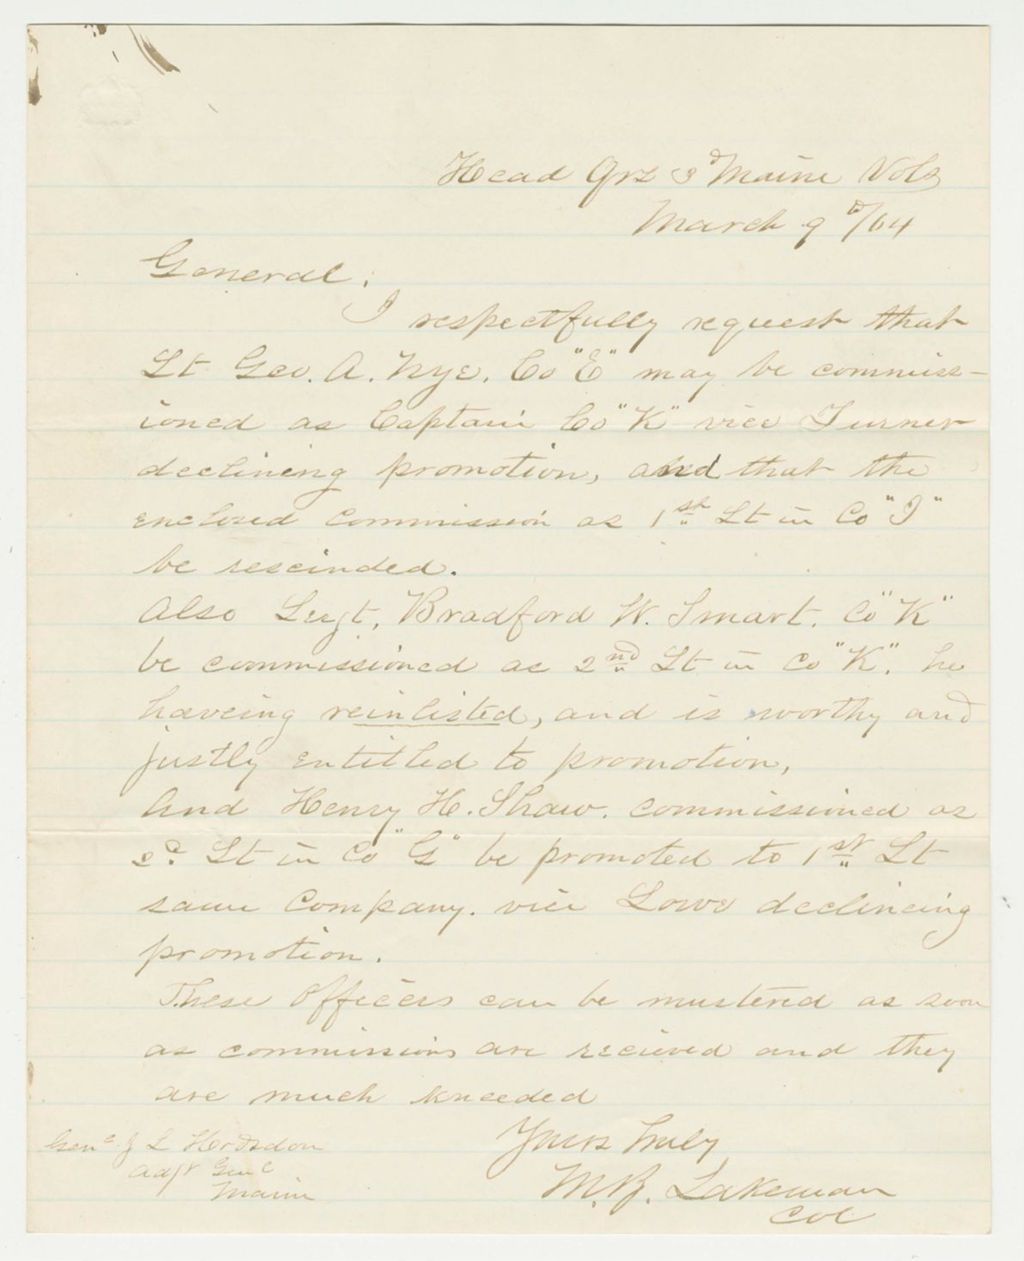 Head Qrs 3d Maine Vols
March 9th/64
General;
I respectfully request that
Lt Geo. A. Nye, Co "E" may be commiss-
ioned as Captain Co "K" vice Turner
declining promotion, and that the
enclosed commission as 1st Lt in Co "I"
be rescinded.
Also Sergt, Bradford W. Smart. Co "K"
be commissioned as 2nd Lt in Co "K". he
haveing reinlisted, and is worthy and
justly entitled to promotion,
And Henry H. Shaw. commissioned as
2d. Lt in Co "G" be promoted to 1st Lt
same Company. vice Lowe declineing
promotion.
These Officers can be mustered as soon
as commissions are recieved and they
are much kneeded
Yours truly
M.B. Lakeman
Col
Genl J L Hodsdon
Adjt Genl
Maine